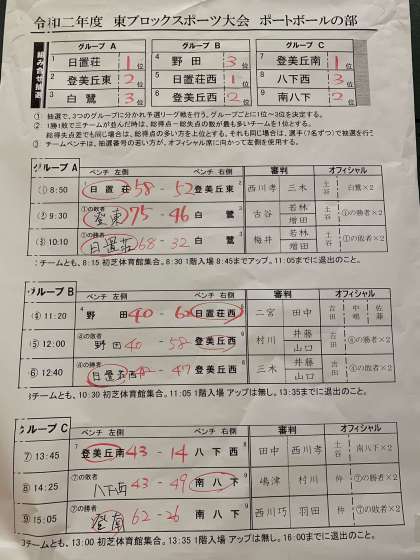 令和二年度 東ブロックスポーツ大会 ポートボールの部
組み合せ抽選
グループ A グループ B グループ C
1 日置荘 1位 4 野田 3位 7 登美丘南 1位
2 登美丘東 2位 5 日置荘西 1位 8 八下西 3位
3 白鷺 3位 6 登美丘西 2位 9 南八下 2位
① 抽選で、3つのグループに分かれ予選リーグ戦を行う。グループごとに1位～3位を決定する。
② 1勝1敗で三チームが並んだ時は、総得点－総失点の数が最も多いチームを1位とする。
総得失点差でも同じ場合は、総得点の多い方を上位とする。それも同じ場合は、選手(7名ずつ)で抽選を行
③ チームベンチは、抽選番号の若い方が、オフィシャル席に向かって左側を使用する。
グループ A
ベンチ 左側 ベンチ 右側 審判 オフィシャル
① 8:50 1 日置荘 58 - 52 登美丘東 2 西川孝 三木 土谷 白鷺×2
② 9:30 ①の敗者 登東 75 - 46 白鷺 3 古谷 若林 増田 土谷 ①の勝者×2
③ 10:10 ①の勝者 日置荘 68 - 32 白鷺 3 梅井 若林 増田 土谷 ①の敗者×2
3チームとも、8:15 初芝体育館集合。8:30 1階入場 8:45までアップ。11:05までに退出のこと。
グループ B
ベンチ 左側 ベンチ 右側 審判 オフィシャル
④ 11:20 4 野田 40 - 60 日置荘西 5 二宮 田中 吉田 中嶋 佐藤
⑤ 12:00 ④の敗者 野田 40 - 58 登美丘西 6 村川 井藤 山口 吉田 ④の勝者×2
⑥ 12:40 ④の勝者 日置荘西 - 47 登美丘西 6 三木 井藤 山口 吉田 ④の敗者×2
3チームとも、10:30 初芝体育館集合。11:05 1階入場 アップは無し。13:35までに退出のこと。
グループ C
ベンチ 左側 ベンチ 右側 審判 オフィシャル
⑦ 13:45 7 登美丘南 43 - 14 八下西 8 田中 西川孝 土谷 南八下×2
⑧ 14:25 ⑦の敗者 八下西 43 - 49 南八下 9 嶋津 村川 仲 ⑦の勝者×2
⑨ 15:05 ⑦の勝者 登南 62 - 26 南八下 9 西川巧 羽田 仲 ⑦の敗者×2
3チームとも、13:00 初芝体育館集合。13:35 1階入場 アップは無し。16:00までに退出のこと。